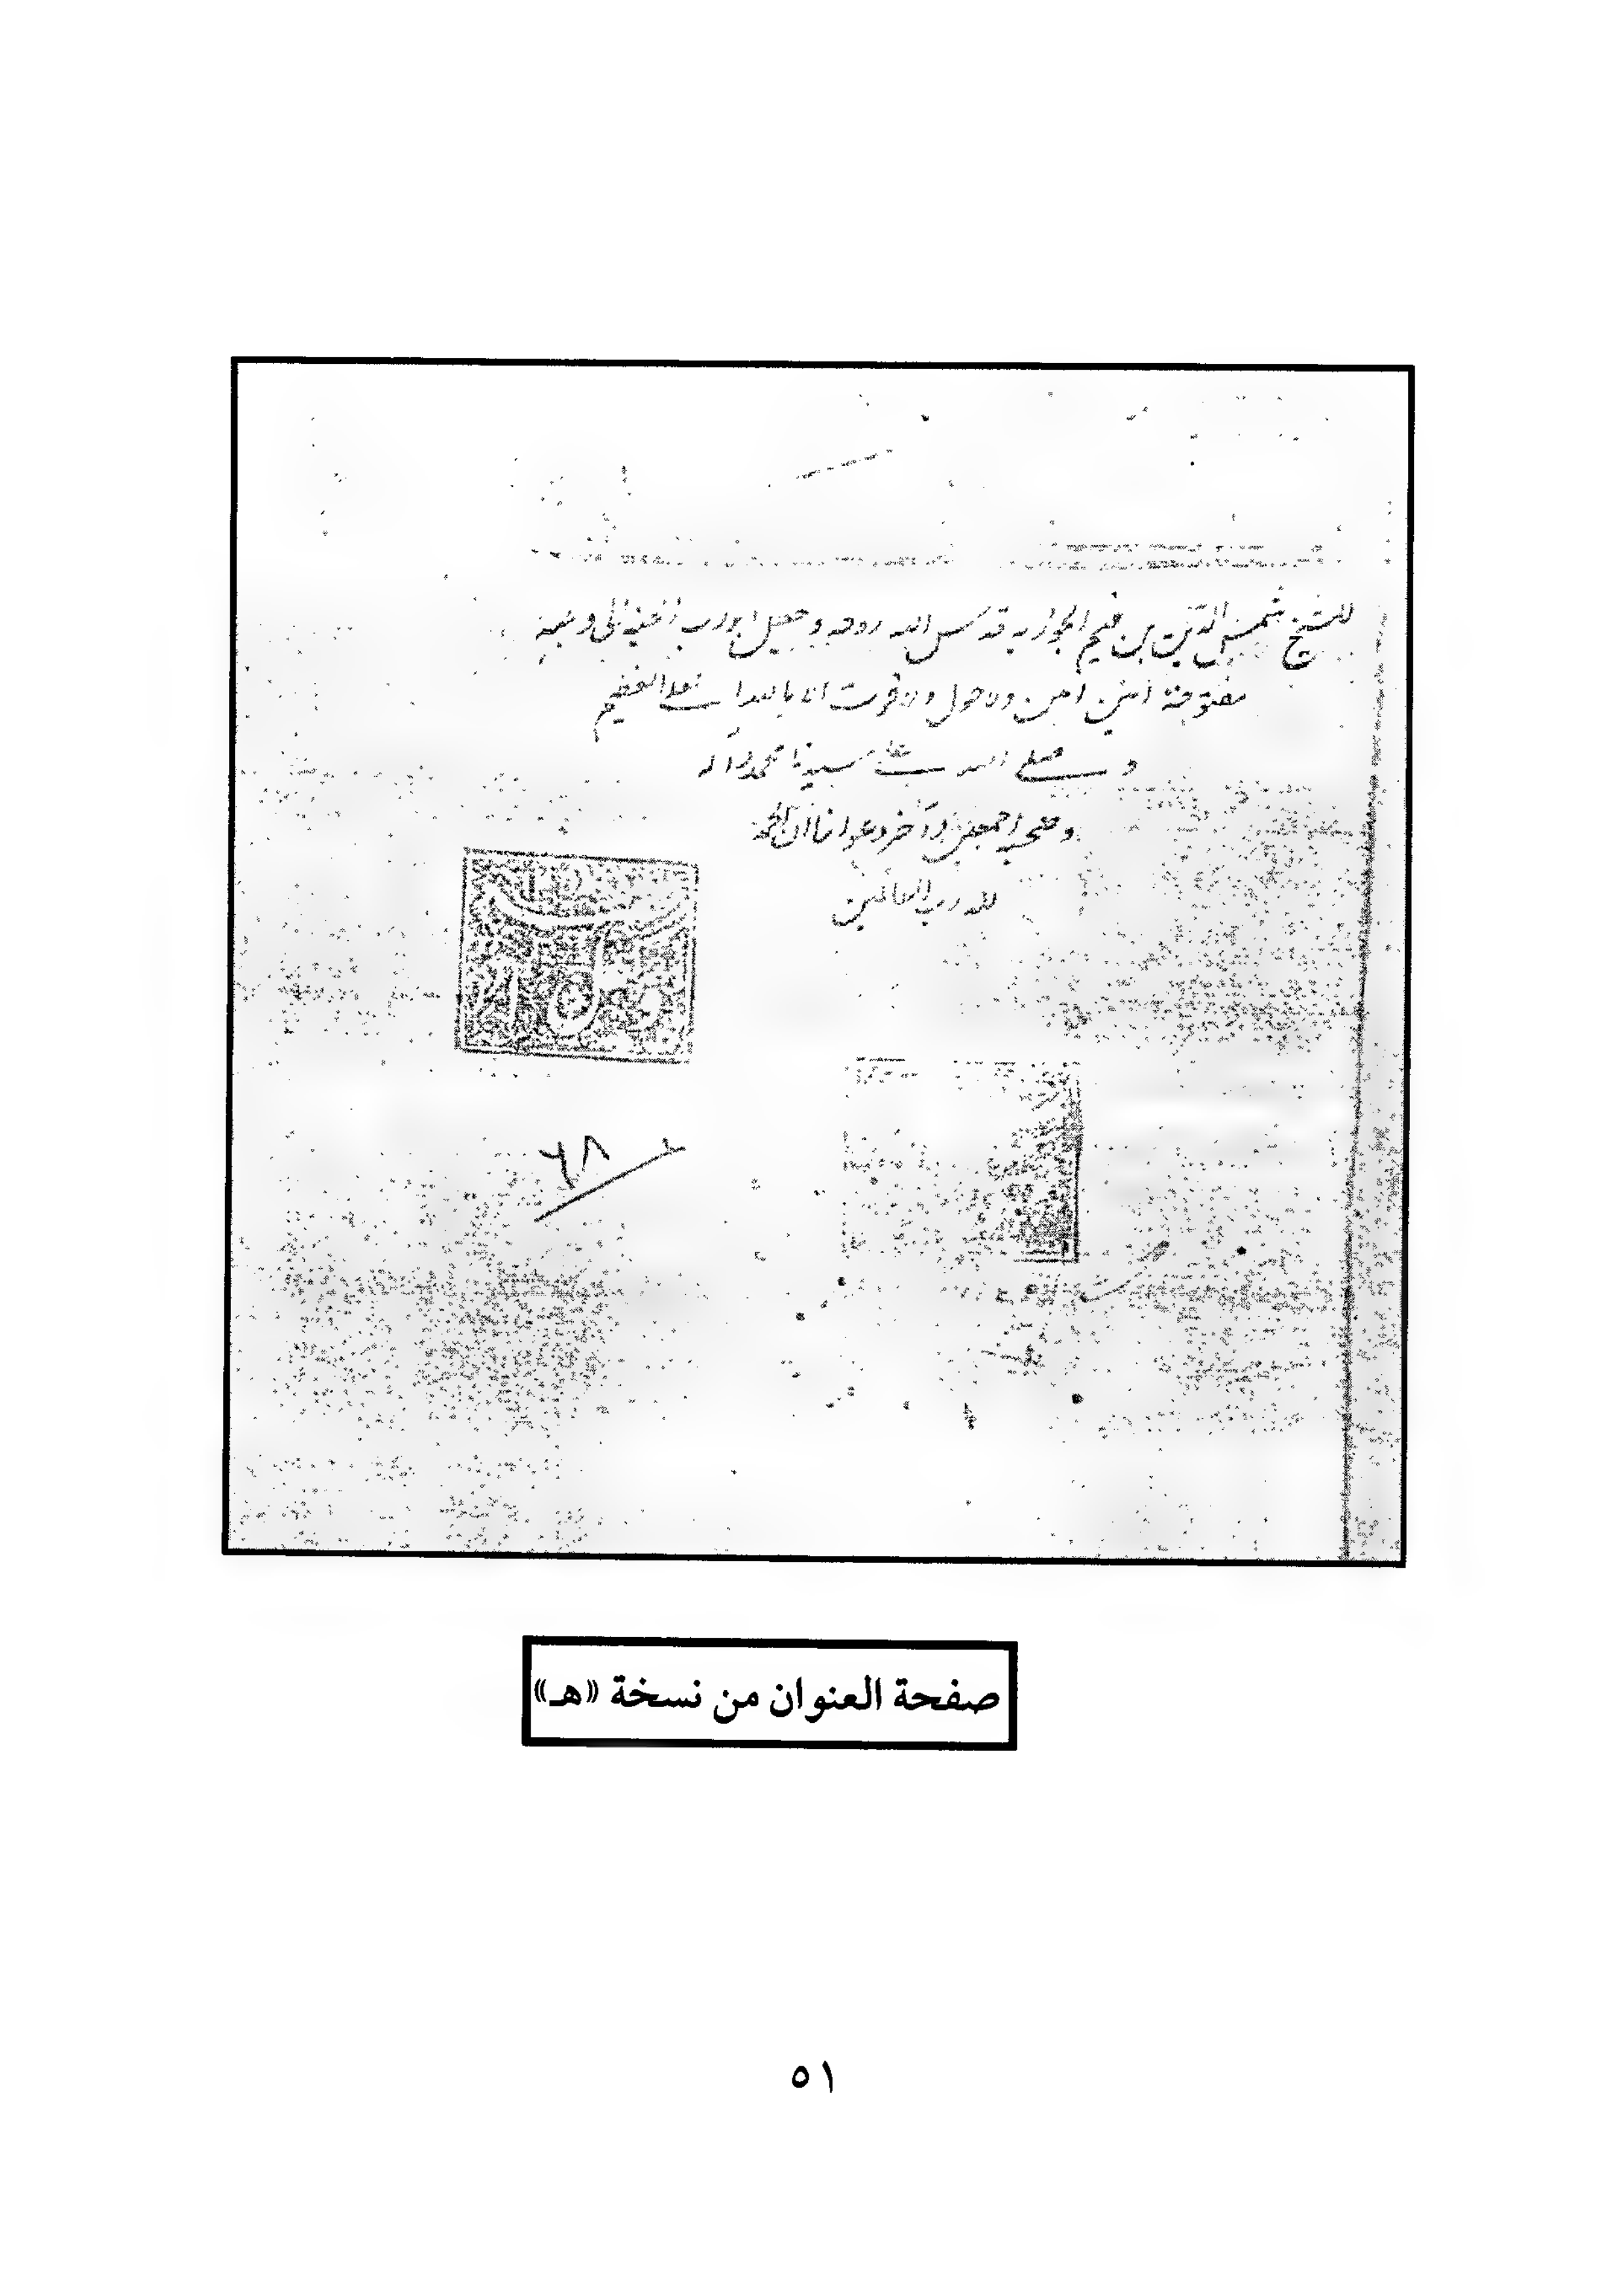 للشيخ شمس الدين بن قيم الجوزيه قدس الله روحه وجعل ابواب
مفتوحة امين امين ولا حول ولا قوت الا بالله العلي العظيم
و صلى الله على سيدنا محمد وآله
وصحبه اجمعين وآخر دعوانا ان الحمد
لله رب العالمين
٦٨
صفحة العنوان من نسخة «هـ»
٥١